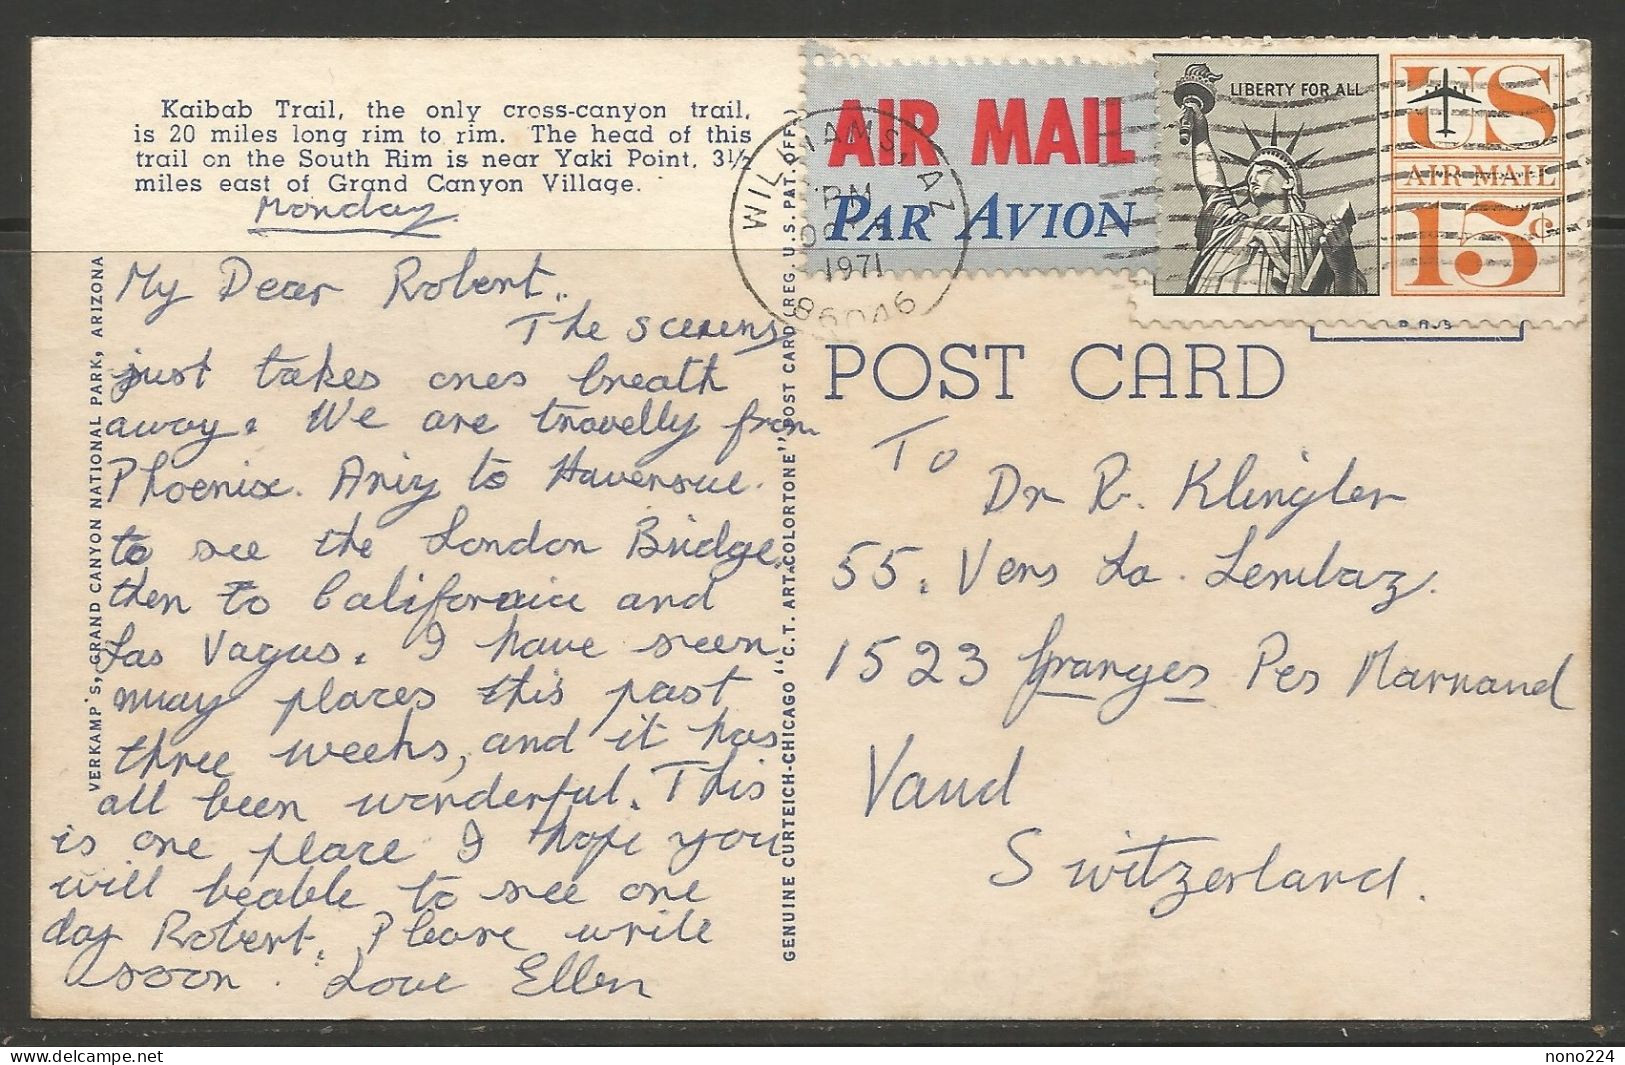 Kaibab Trail, the only cross-canyon trail,
is 20 miles long rim to rim. The head of this
trail on the South Rim is near Yaki Point, 3½
miles east of Grand Canyon Village.
Monday
My Dear Robert.
The scerens
just takes ones breath
away. We are travelly from
Phoenix. Ariz to Haversue.
to see the London Bridge.
then to California and
Las Vagus. I have seen
muay places this past
three weeks, and it has
all been wonderful. This
is one place I hope you
will beable to see one
day Robert. Please write
soon. Love Ellen
VERKAMP'S, GRAND CANYON NATIONAL PARK, ARIZONA
GENUINE CURTEICH-CHICAGO "C.T. ART-COLORTONE" POST CARD (REG. U.S. PAT. OFF.)
WILLIAMS, AZ
PM
1971
86046
AIR MAIL
PAR AVION
LIBERTY FOR ALL
US
AIR MAIL
15¢
POST CARD
To
Dr R. Klingler
55. Vers La. Lembaz.
1523 Granges Pes Marnand
Vaud
Switzerland.
nono224